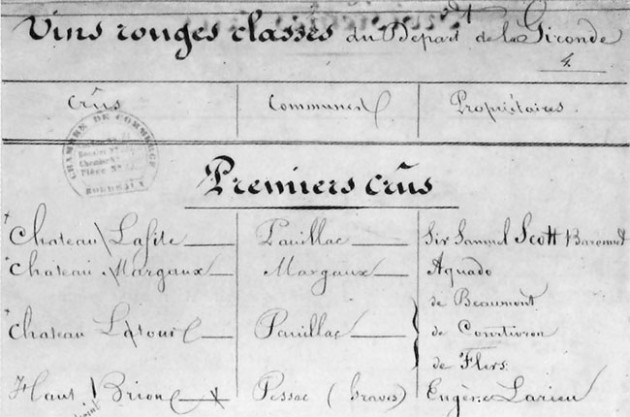 Vins rouges classés du Départ de la Gironde
4.
Crûs Communes Propriétaires
CHAMBRE DE COMMERCE
BORDEAUX
Premiers crûs
Chateau Lafite Pauillac Sir Samuel Scott Baronnet
Chateau Margaux Margaux Aguado
de Beaumont
Chateau Latour Pauillac de Courtivron
de Flers
Haut Brion Pessac (Graves) Eugène Larieu